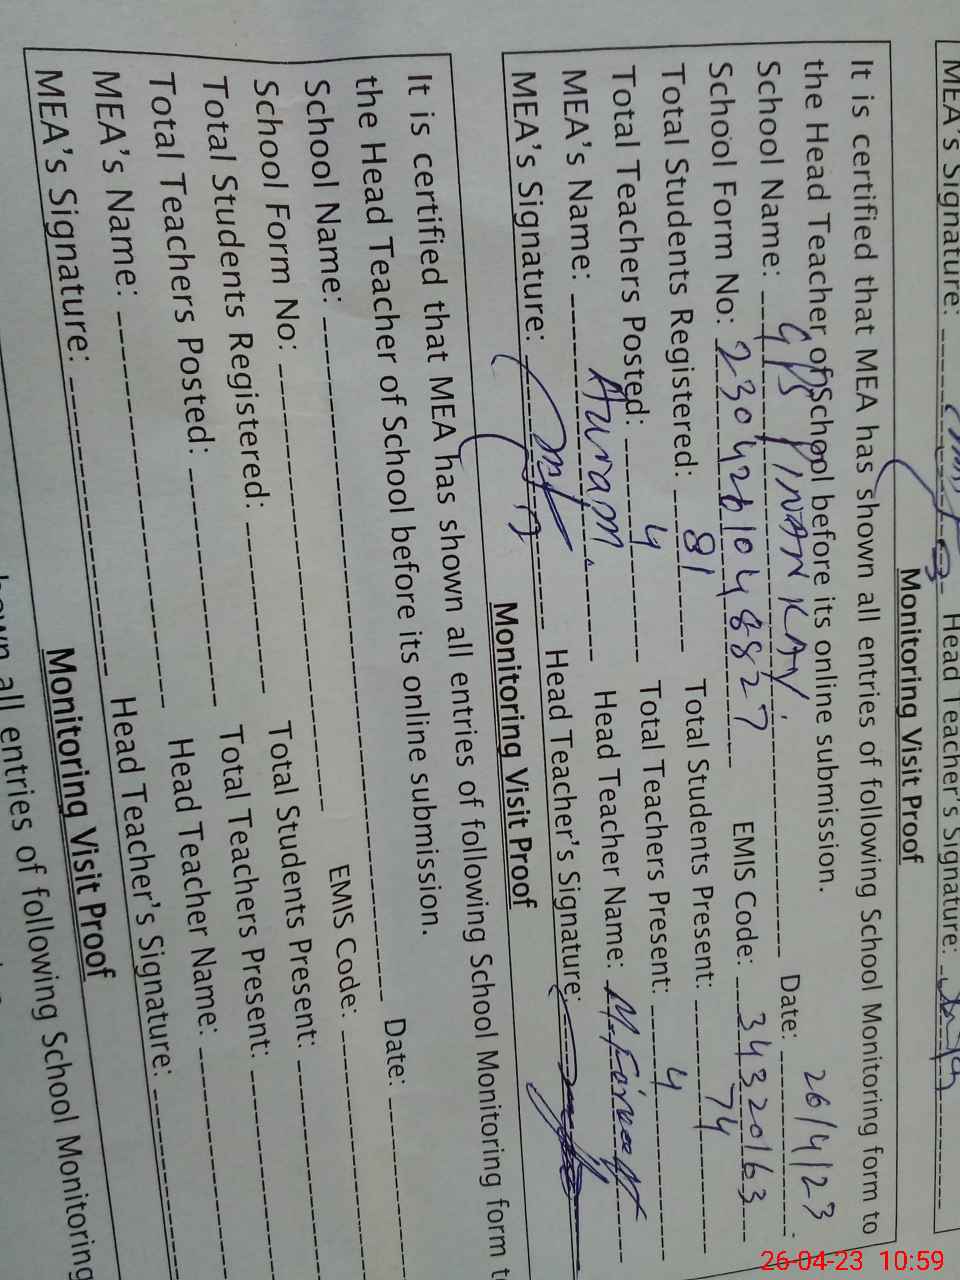 MEA's Signature: Head Teacher's Signature:
Monitoring Visit Proof
It is certified that MEA has shown all entries of following School Monitoring form to
the Head Teacher of School before its online submission.
School Name: GPS PINAN KAN. Date: 26/4/23
School Form No: 2304261048827 EMIS Code: 34320163
Total Students Registered: 81 Total Students Present: 74
Total Teachers Posted: 4 Total Teachers Present: 4
MEA's Name: Huram. Head Teacher Name:
MEA's Signature: Head Teacher's Signature:
Monitoring Visit Proof
It is certified that MEA has shown all entries of following School Monitoring form t
the Head Teacher of School before its online submission.
School Name: Date:
School Form No: EMIS Code:
Total Students Registered: Total Students Present:
Total Teachers Posted: Total Teachers Present:
MEA's Name: Head Teacher Name:
MEA's Signature: Head Teacher's Signature:
Monitoring Visit Proof
hown all entries of following School Monitoring
26-04-23 10:59